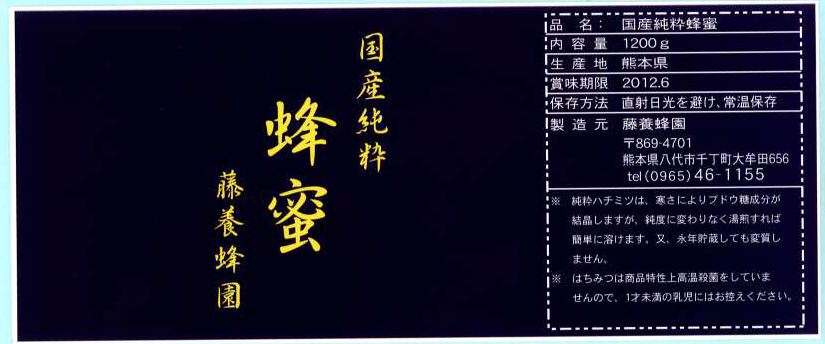 国産純粋
蜂蜜
藤養蜂園
品名： 国産純粋蜂蜜
内容量 1200g
生産地 熊本県
賞味期限 2012.6
保存方法 直射日光を避け、常温保存
製造元 藤養蜂園
〒869-4701
熊本県八代市千丁町大牟田656
tel(0965)46-1155
※ 純粋ハチミツは、寒さによりブドウ糖成分が
結晶しますが、純度に変わりなく湯煎すれば
簡単に溶けます。又、永年貯蔵しても変質し
ません。
※ はちみつは商品特性上高温殺菌をしていま
せんので、1才未満の乳児にはお控えください。